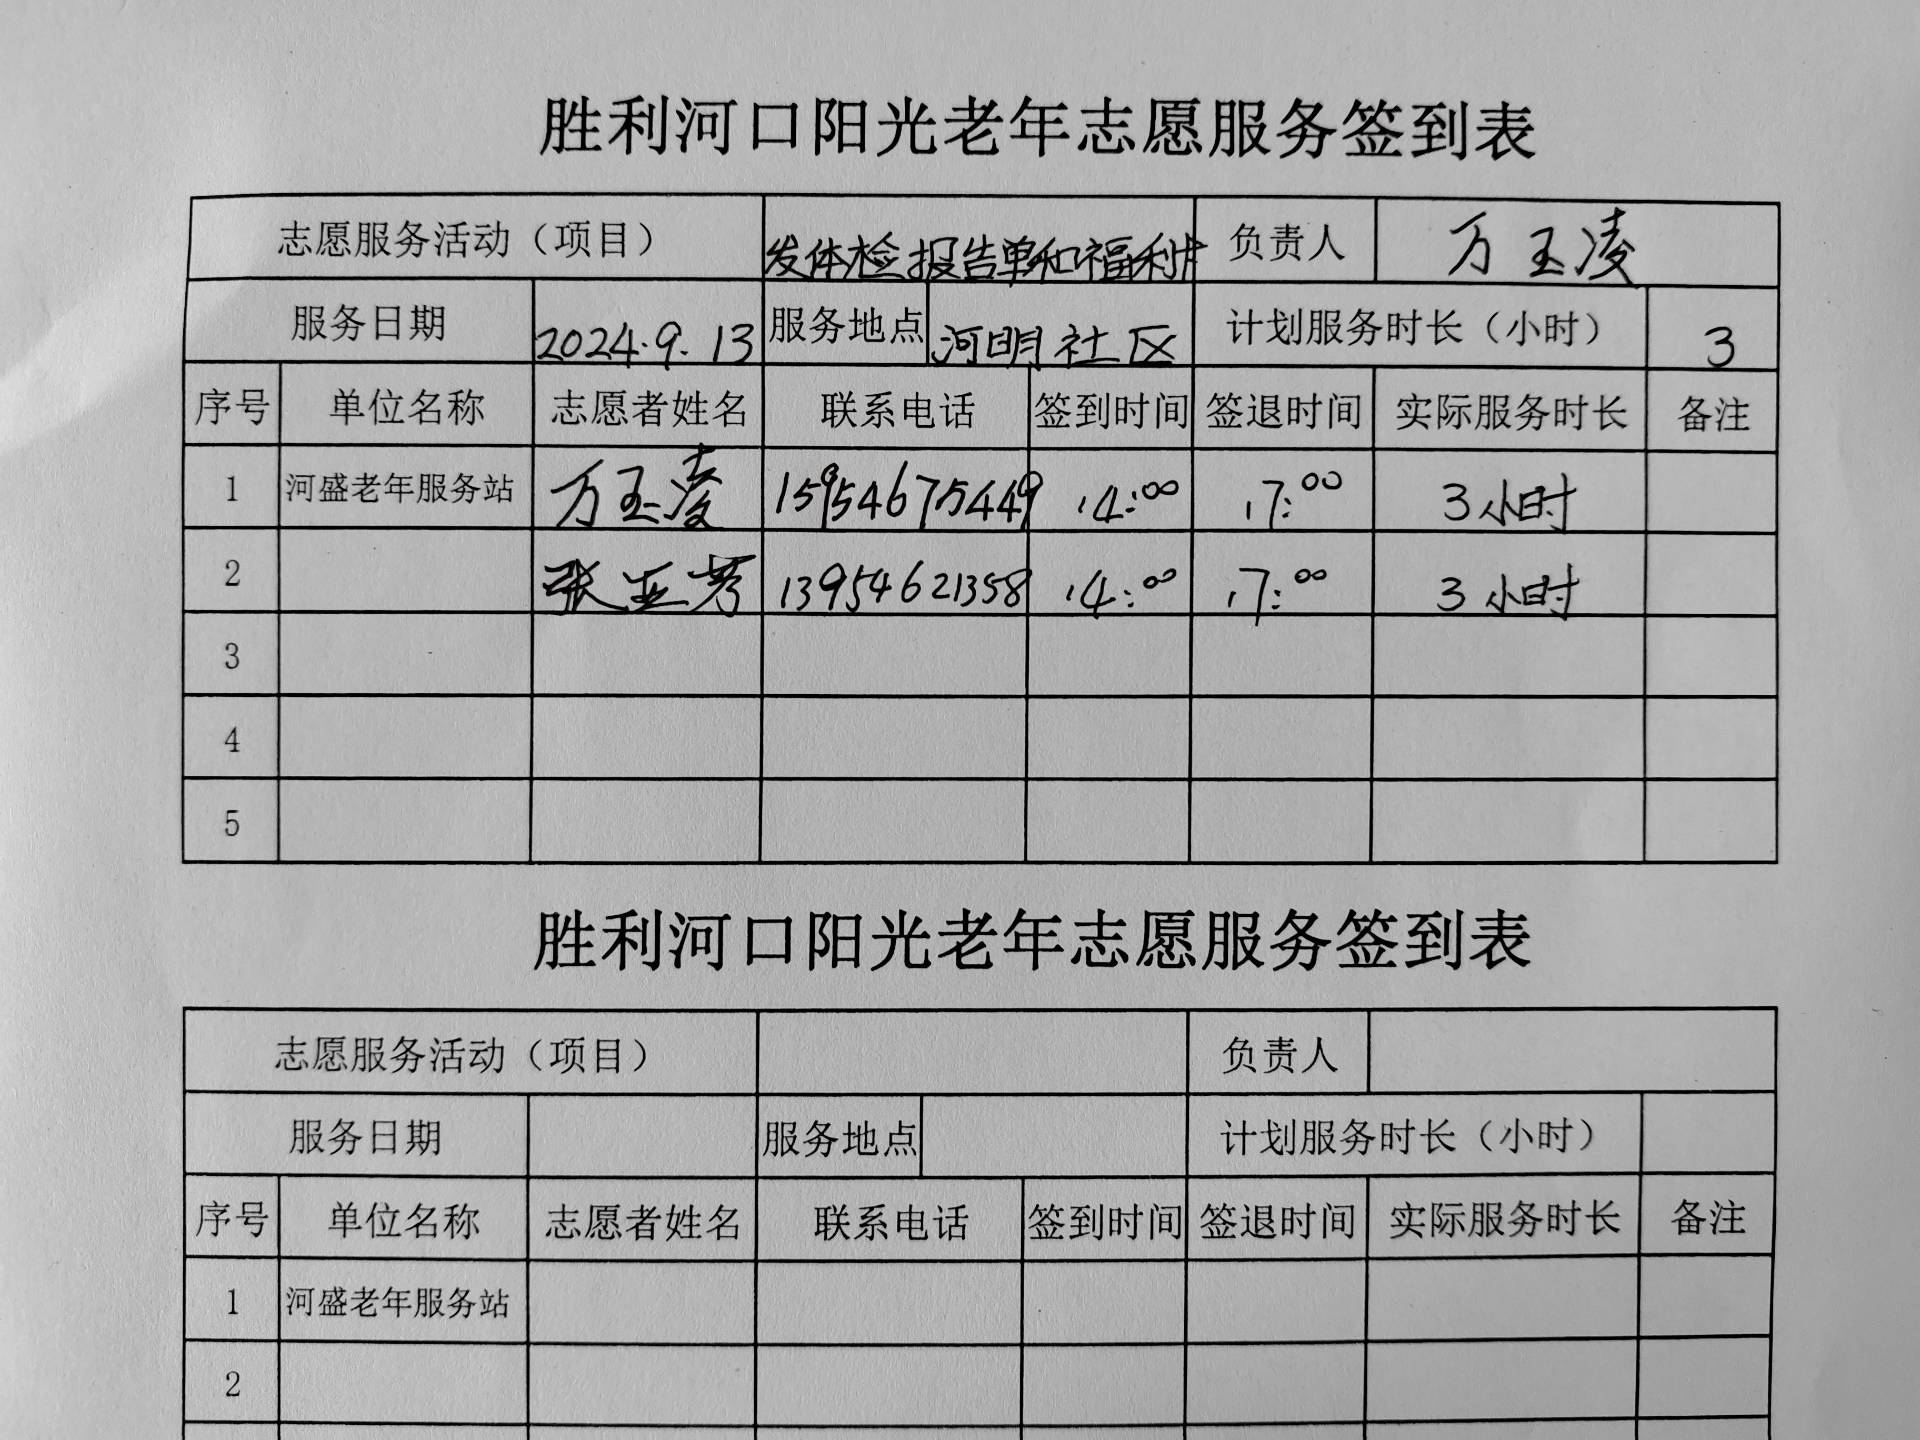 胜利河口阳光老年志愿服务签到表
志愿服务活动（项目） 发体检报告单和福利卡 负责人 万玉凌
服务日期 2024.9.13 服务地点 河明社区 计划服务时长（小时） 3
序号 单位名称 志愿者姓名 联系电话 签到时间 签退时间 实际服务时长 备注
1 河盛老年服务站 万玉凌 15954675449 14:00 17:00 3小时
2 张亚芳 13954621358 14:00 17:00 3小时
3
4
5
胜利河口阳光老年志愿服务签到表
志愿服务活动（项目） 负责人
服务日期 服务地点 计划服务时长（小时）
序号 单位名称 志愿者姓名 联系电话 签到时间 签退时间 实际服务时长 备注
1 河盛老年服务站
2